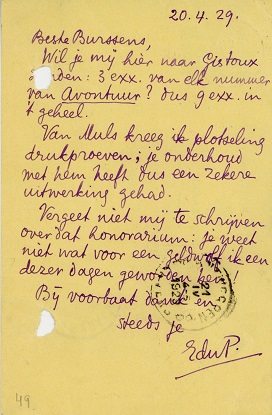 20.4.29.
Beste Burssens,
Wil je mij hier naar Gistoux
zenden: 3 exx. van elk nummer
van Avontuur? dus 9 exx. in
't geheel.
Van Muls kreeg ik plotseling
drukproeven; je onderhoud
met hem heeft dus een zekere
uitwerking gehad.
Vergeet niet mij te schrijven
over dat honorarium: je weet
niet wat voor een geldwolf ik een
dezer dagen geworden ben!
Bij voorbaat dank en
steeds je
EduP.
21
IV
1929
49